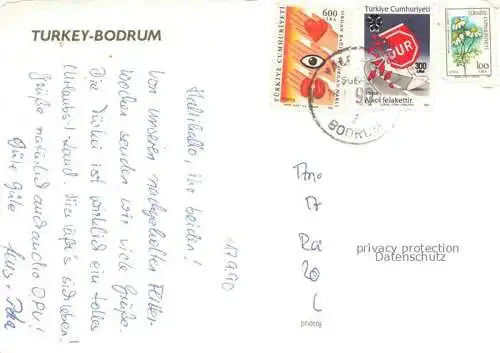 TURKEY-BODRUM
17.9.90
Hallihallo, ihr beiden!
Von unseren nachgeholten Flitter-
wochen senden wir viele Grüße.
Die Türkei ist wirklich ein tolles
Urlaubsland. Hier läßt's sich leben!
Grüße natürlich auch an die OPV!
Gute Güte
TÜRKİYE CUMHURİYETİ
600
LİRA
Türkiye Cumhuriyeti
DUR
300
LİRA
Alkol felakettir.
TÜRKİYE
CUMHURİYETİ
100
LİRA
BODRUM
privacy protection
Datenschutz